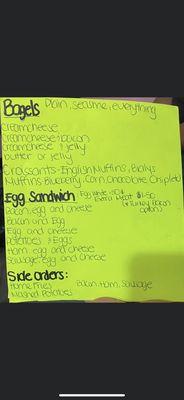 Bagels Plain, seasme, everything
creamcheese
creamcheese & bacon
creamcheese & jelly
butter or jelly
Croissants - English Muffins, Bialys
Muffins - Blueberry, corn, chocolate chip
Egg Sandwich Egg white .50¢
Extra Meat $1.50
Bacon egg and cheese
Bacon and Egg
Egg and cheese
potatoes & Eggs
Ham egg and cheese
Sausage egg and cheese
Side orders:
Home Fries Bacon, Ham, Sausage
Mashed Potatoes